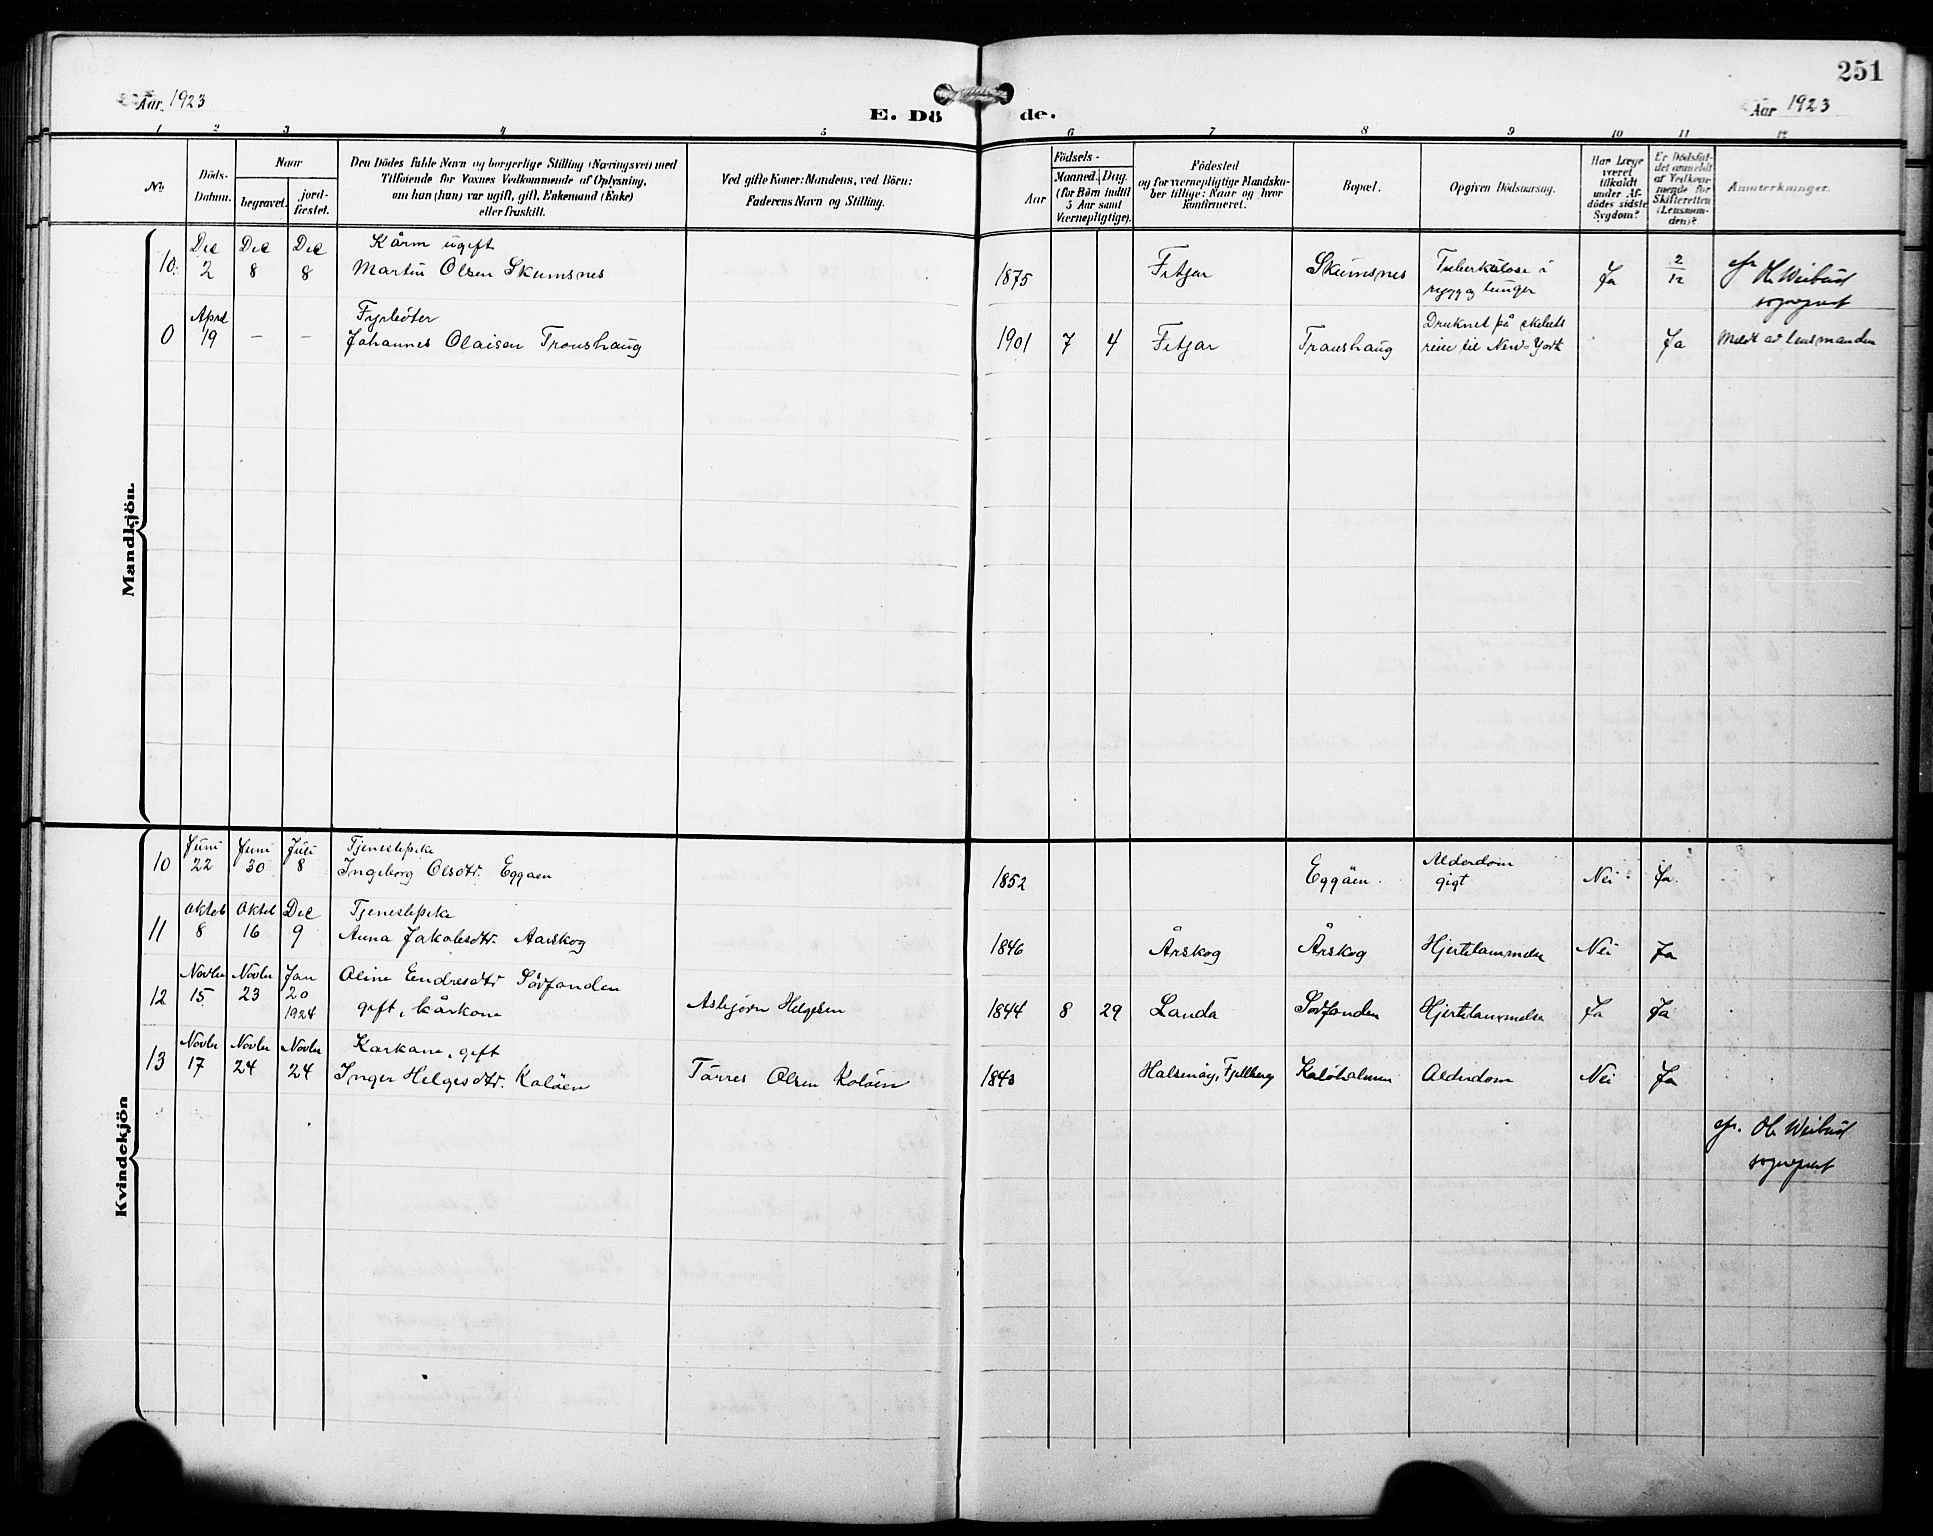 251
Aar 1923
Aar 1923
E. Dö de.
1 2 3 4 5 6 7 8 9 10 11 12
No
Döds-
Datum.
Naar
begravet.
jord-
fæstet.
Den Dödes fulde Navn og borgerlige Stilling (Næringsvei) med
Tilföiende for Voxnes Vedkommende af Oplysning,
om han (hun) var ugift, gift, Enkemand (Enke)
eller fraskilt.
Ved gifte Koner: Mandens, ved Börn:
Faderens Navn og Stilling.
Födsels-
Aar
Maaned. Dag.
(for Börn indtil
5 Aar samt
Værnepligtige).
Födested
og for værnepligtige Mandska-
ber tillige: Naar og hvor
konfirmeret.
Bopæl.
Opgiven Dödsaarsag.
Har Læge
været
tilkaldt
under Af-
dödes sidste
Sygdom?
Er Dödsfal-
det anmeldt
af Vedkom-
mende for
Skifteretten
(Lensman-
den)?
Anmerkninger.
Mandkjön.
10. Dec 2 Dec 8 Dec 8 Kårm ugift
Martin Olsen Skumsnes 1875 Fitjar Skumsnes Tuberkulose i
rygg og lunger Ja 2/12 efr Ol. Weibust
sogneprest
0 April 19 — — Fyrbøter
Johannes Olaisen Tronshaug 1901 7 4 Fitjar Transhaug Druknet på skibets
reise til New-York Ja Meldt av lensmanden
Kvindekjön
10 Juni 22 Juni 30 Juli 8 Tjenestepike
Ingeborg Olsdtr. Eggøen 1852 Eggöen. Alderdom
gigt Nei Ja.
11 Oktob 8 Oktob 16 Dec 9 Tjenestepike
Anna Jakobsdtr. Aarskog 1846 Årskog Årskog Hjertelammelse Nei Ja
12 Novbr 15 Novbr 23 Jan 20 1924 Oline Endresdtr Sörfonden
gift, kårkone Asbjørn Helgesen 1844 8 29 Landa Sörfonden Hjertelammelse Ja Ja
13 Novbr 17 Novbr 24 Novbr 24 Karkone, gift
Inger Helgesdtr. Kalöen Tørres Olsen Kolöen 1843 Halsenøy, Fjellberg Kalöholmen Alderdom Nei Ja
efr. Ol. Weibust
sogneprest